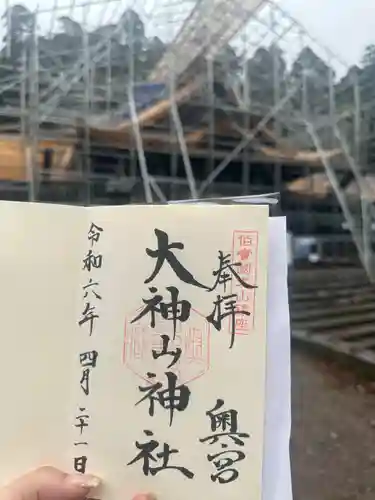 奉拝
伯耆國大山鎮座
奥宮
大神山神社
令和六年 四月二十一日